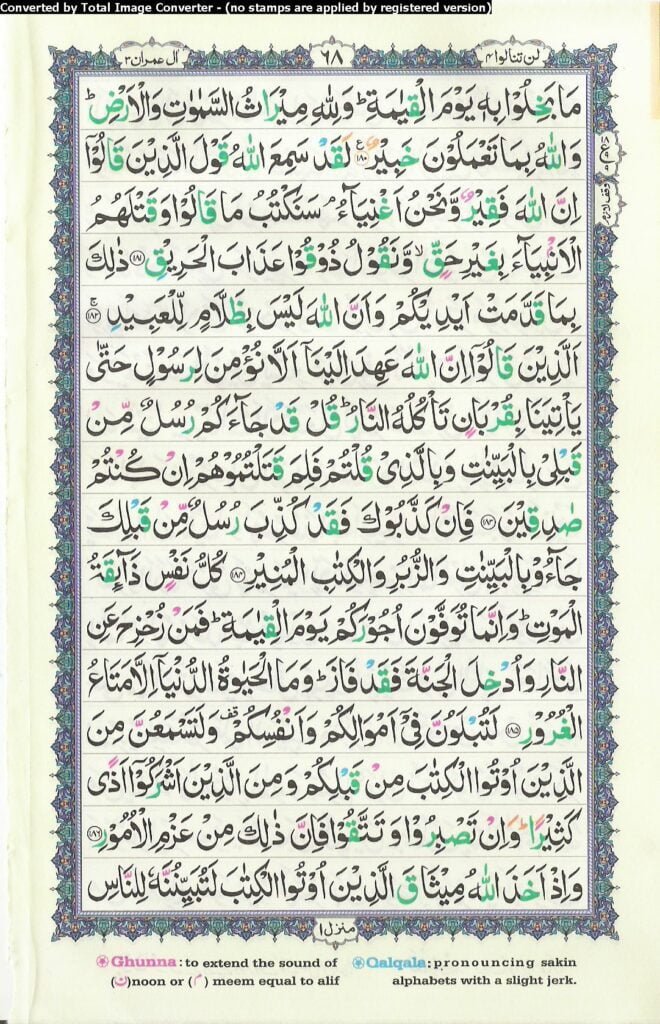 Converted by Total Image Converter - (no stamps are applied by registered version)
لن تنالوا ۴ ٦٨ اٰل عمران ۳
مَا بَخِلُوْا بِهٖ يَوْمَ الْقِيٰمَةِ ؕ وَلِلّٰهِ مِيْرَاثُ السَّمٰوٰتِ وَالْاَرْضِ ؕ
وَاللّٰهُ بِمَا تَعْمَلُوْنَ خَبِيْرٌ ﴿۱۸۰﴾ لَقَدْ سَمِعَ اللّٰهُ قَوْلَ الَّذِيْنَ قَالُوْۤا
اِنَّ اللّٰهَ فَقِيْرٌ وَّنَحْنُ اَغْنِيَآءُ ۘ سَنَكْتُبُ مَا قَالُوْا وَقَتْلَهُمُ
الْاَنْۢبِيَآءَ بِغَيْرِ حَقٍّ ۙ وَّنَقُوْلُ ذُوْقُوْا عَذَابَ الْحَرِيْقِ ﴿۱۸۱﴾ ذٰلِكَ
بِمَا قَدَّمَتْ اَيْدِيْكُمْ وَاَنَّ اللّٰهَ لَيْسَ بِظَلَّامٍ لِّلْعَبِيْدِ ﴿۱۸۲﴾ۚ
اَلَّذِيْنَ قَالُوْۤا اِنَّ اللّٰهَ عَهِدَ اِلَيْنَاۤ اَلَّا نُؤْمِنَ لِرَسُوْلٍ حَتّٰى
يَاْتِيَنَا بِقُرْبَانٍ تَاْكُلُهُ النَّارُ ؕ قُلْ قَدْ جَآءَكُمْ رُسُلٌ مِّنْ
قَبْلِىْ بِالْبَيِّنٰتِ وَبِالَّذِىْ قُلْتُمْ فَلِمَ قَتَلْتُمُوْهُمْ اِنْ كُنْتُمْ
صٰدِقِيْنَ ﴿۱۸۳﴾ فَاِنْ كَذَّبُوْكَ فَقَدْ كُذِّبَ رُسُلٌ مِّنْ قَبْلِكَ
جَآءُوْ بِالْبَيِّنٰتِ وَالزُّبُرِ وَالْكِتٰبِ الْمُنِيْرِ ﴿۱۸۴﴾ كُلُّ نَفْسٍ ذَآئِقَةُ
الْمَوْتِ ؕ وَاِنَّمَا تُوَفَّوْنَ اُجُوْرَكُمْ يَوْمَ الْقِيٰمَةِ ؕ فَمَنْ زُحْزِحَ عَنِ
النَّارِ وَاُدْخِلَ الْجَنَّةَ فَقَدْ فَازَ ؕ وَمَا الْحَيٰوةُ الدُّنْيَاۤ اِلَّا مَتَاعُ
الْغُرُوْرِ ﴿۱۸۵﴾ لَتُبْلَوُنَّ فِىْۤ اَمْوَالِكُمْ وَاَنْفُسِكُمْ قف وَلَتَسْمَعُنَّ مِنَ
الَّذِيْنَ اُوْتُوا الْكِتٰبَ مِنْ قَبْلِكُمْ وَمِنَ الَّذِيْنَ اَشْرَكُوْۤا اَذًى
كَثِيْرًا ؕ وَاِنْ تَصْبِرُوْا وَتَتَّقُوْا فَاِنَّ ذٰلِكَ مِنْ عَزْمِ الْاُمُوْرِ ﴿۱۸۶﴾
وَاِذْ اَخَذَ اللّٰهُ مِيْثَاقَ الَّذِيْنَ اُوْتُوا الْكِتٰبَ لَتُبَيِّنُنَّهٗ لِلنَّاسِ
وقف لازم
منزل ۱
Ghunna: to extend the sound of
(ن)noon or (م) meem equal to alif
Qalqala: pronouncing sakin
alphabets with a slight jerk.